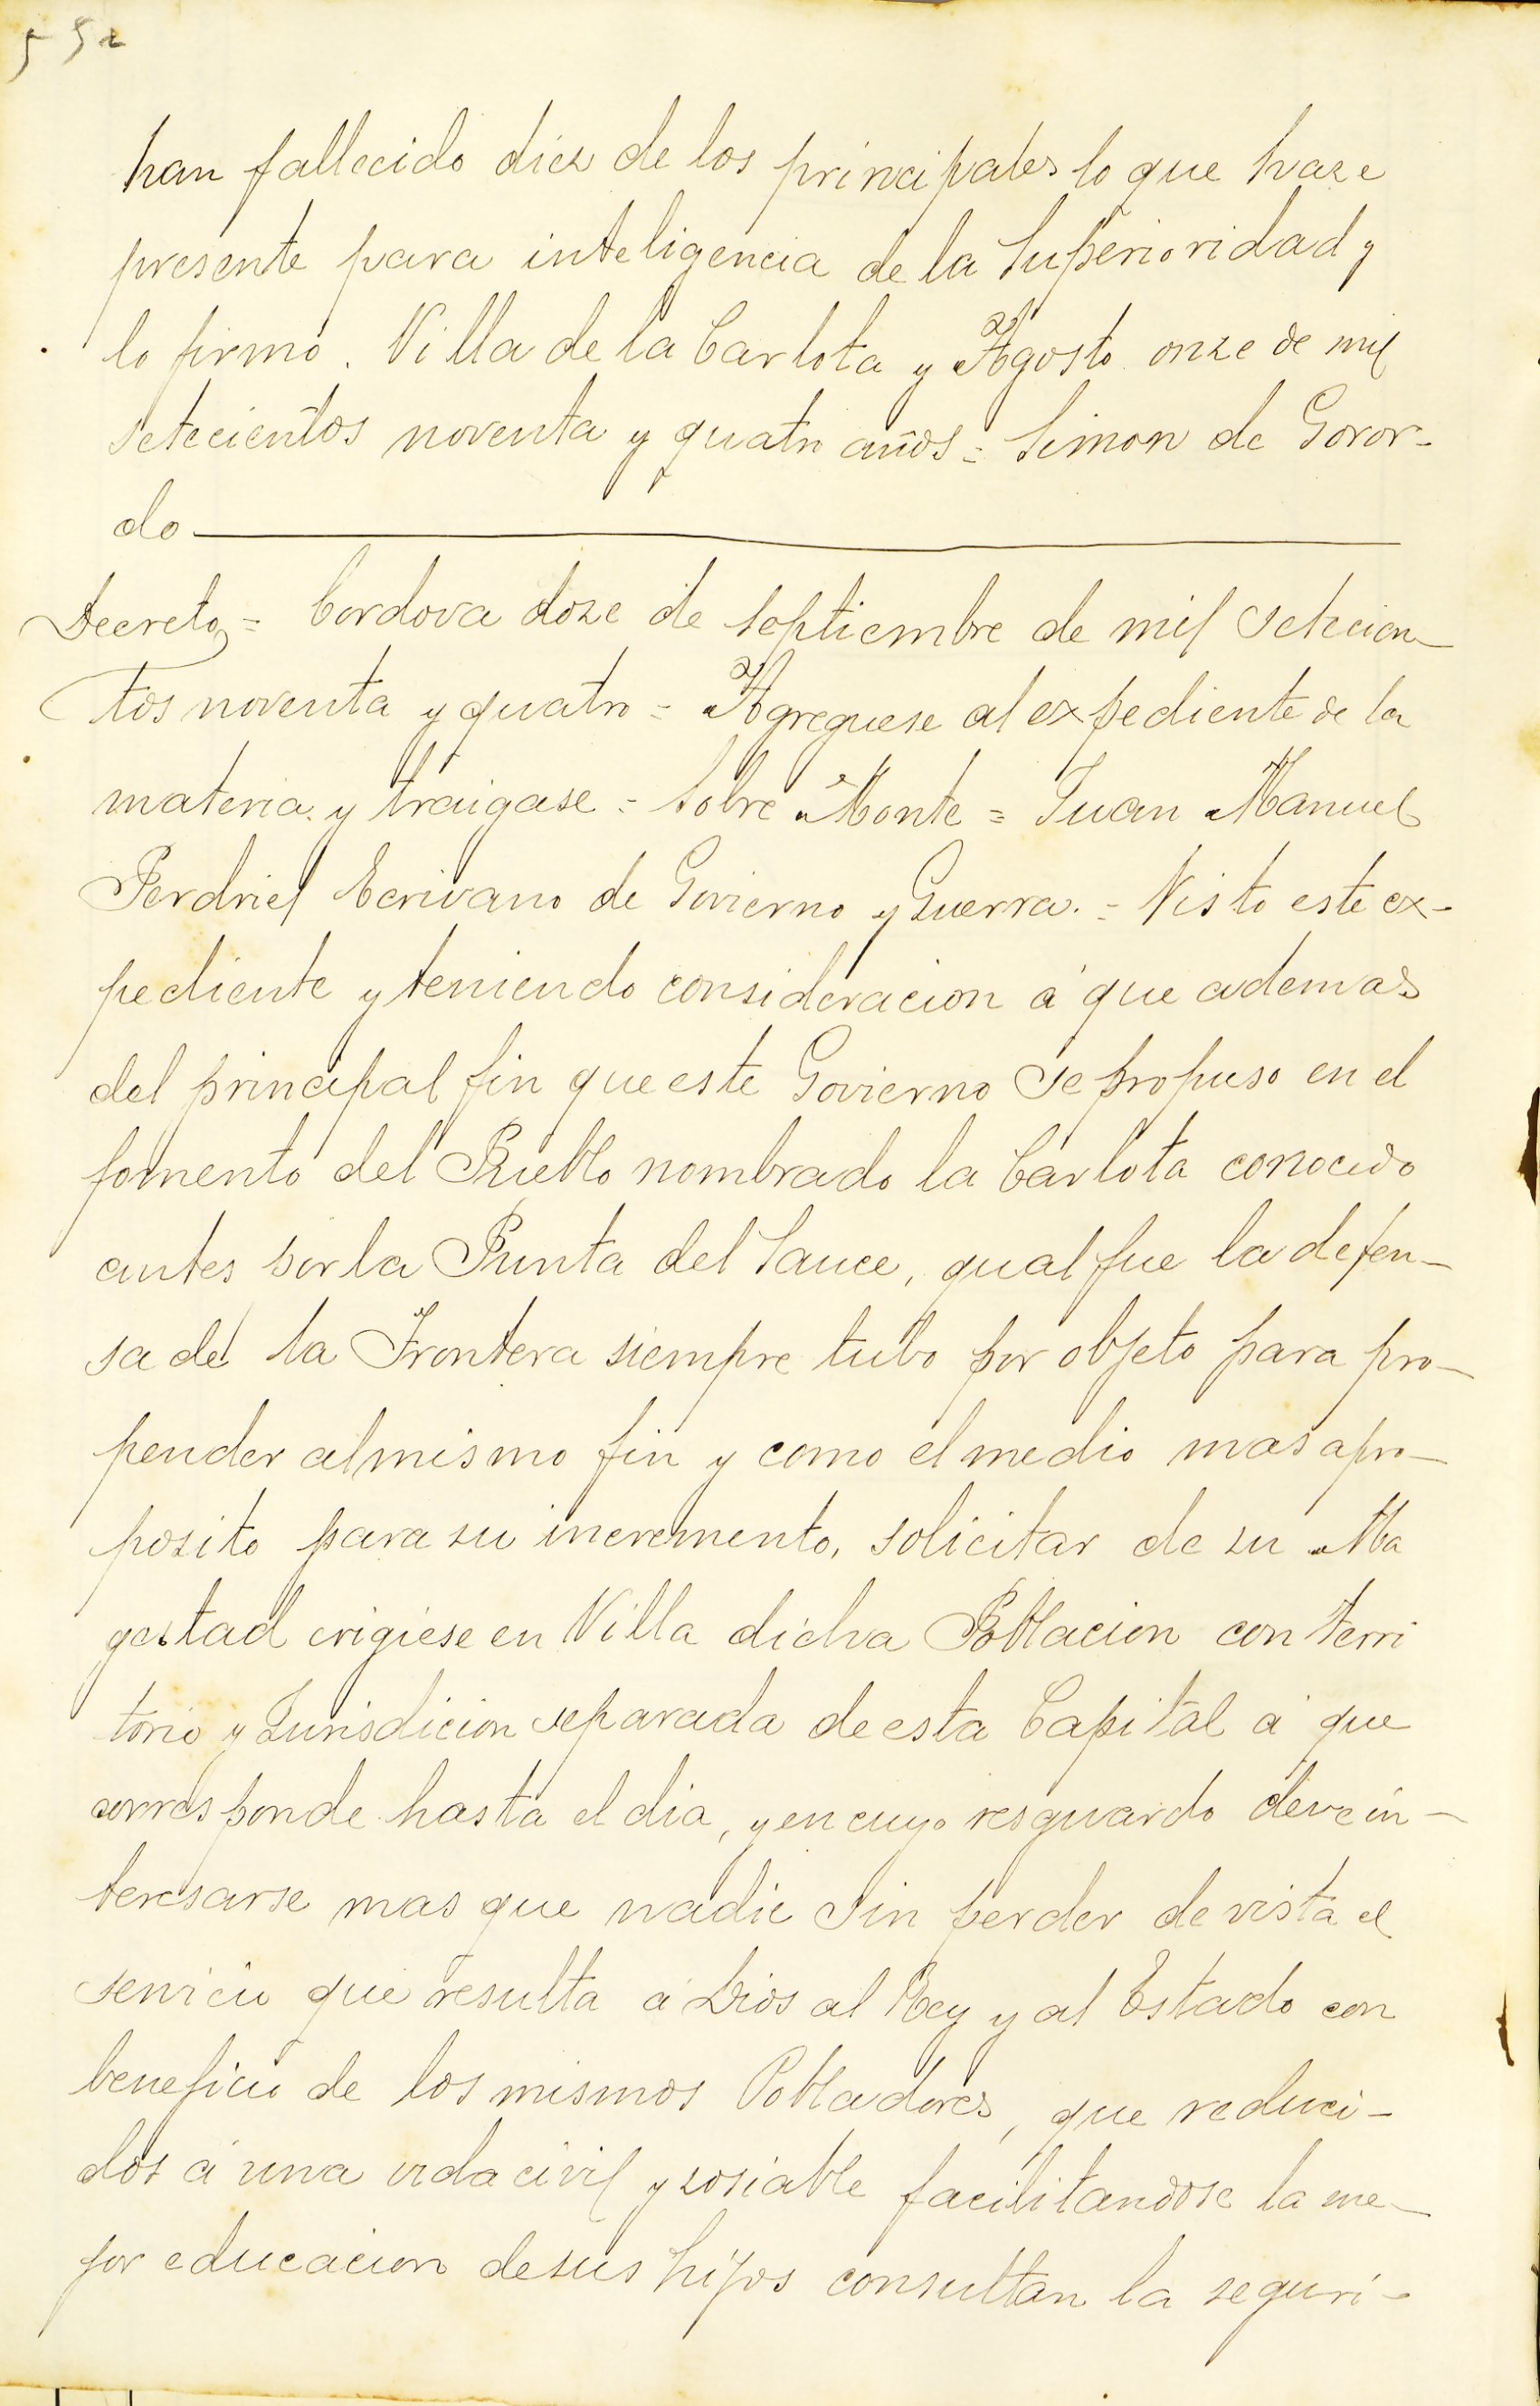 552
han fallecido diez de los principales lo que haze
presente para inteligencia de la Superioridad y
lo firmó. Villa de la Carlota y Agosto onze de mil
setecientos noventa y quatro años = Simon de Goror-
do
Decreto = Cordova doze de Septiembre de mil setecien-
tos noventa y quatro = Agreguese al expediente de la
materia y traigase = Sobre Monte = Juan Manuel
Perdriel Ecrivano de Govierno y Guerra. = Visto este ex-
pediente y teniendo consideracion á que ademas
del principal fin que este Govierno se propuso en el
fomento del Pueblo nombrado la Carlota conocido
antes por la Punta del Sauce, qual fue la defen-
sa de la Frontera siempre tubo por objeto para pro-
pender al mismo fin y como el medio mas apro-
posito para su incremento, solicitar de su Ma
gestad erigiese en Villa dicha Poblacion con terri
torio y Jurisdicion separada de esta Capital á que
corresponde hasta el dia, y en cuyo resguardo deve in-
teresarse mas que nadie sin perder de vista el
servicio que resulta á Dios al Rey y al Estado con
beneficio de los mismos Pobladores, que reduci-
dos á una vida civil y sosiable facilitandose la me-
jor educacion de sus hijos consultan la seguri-